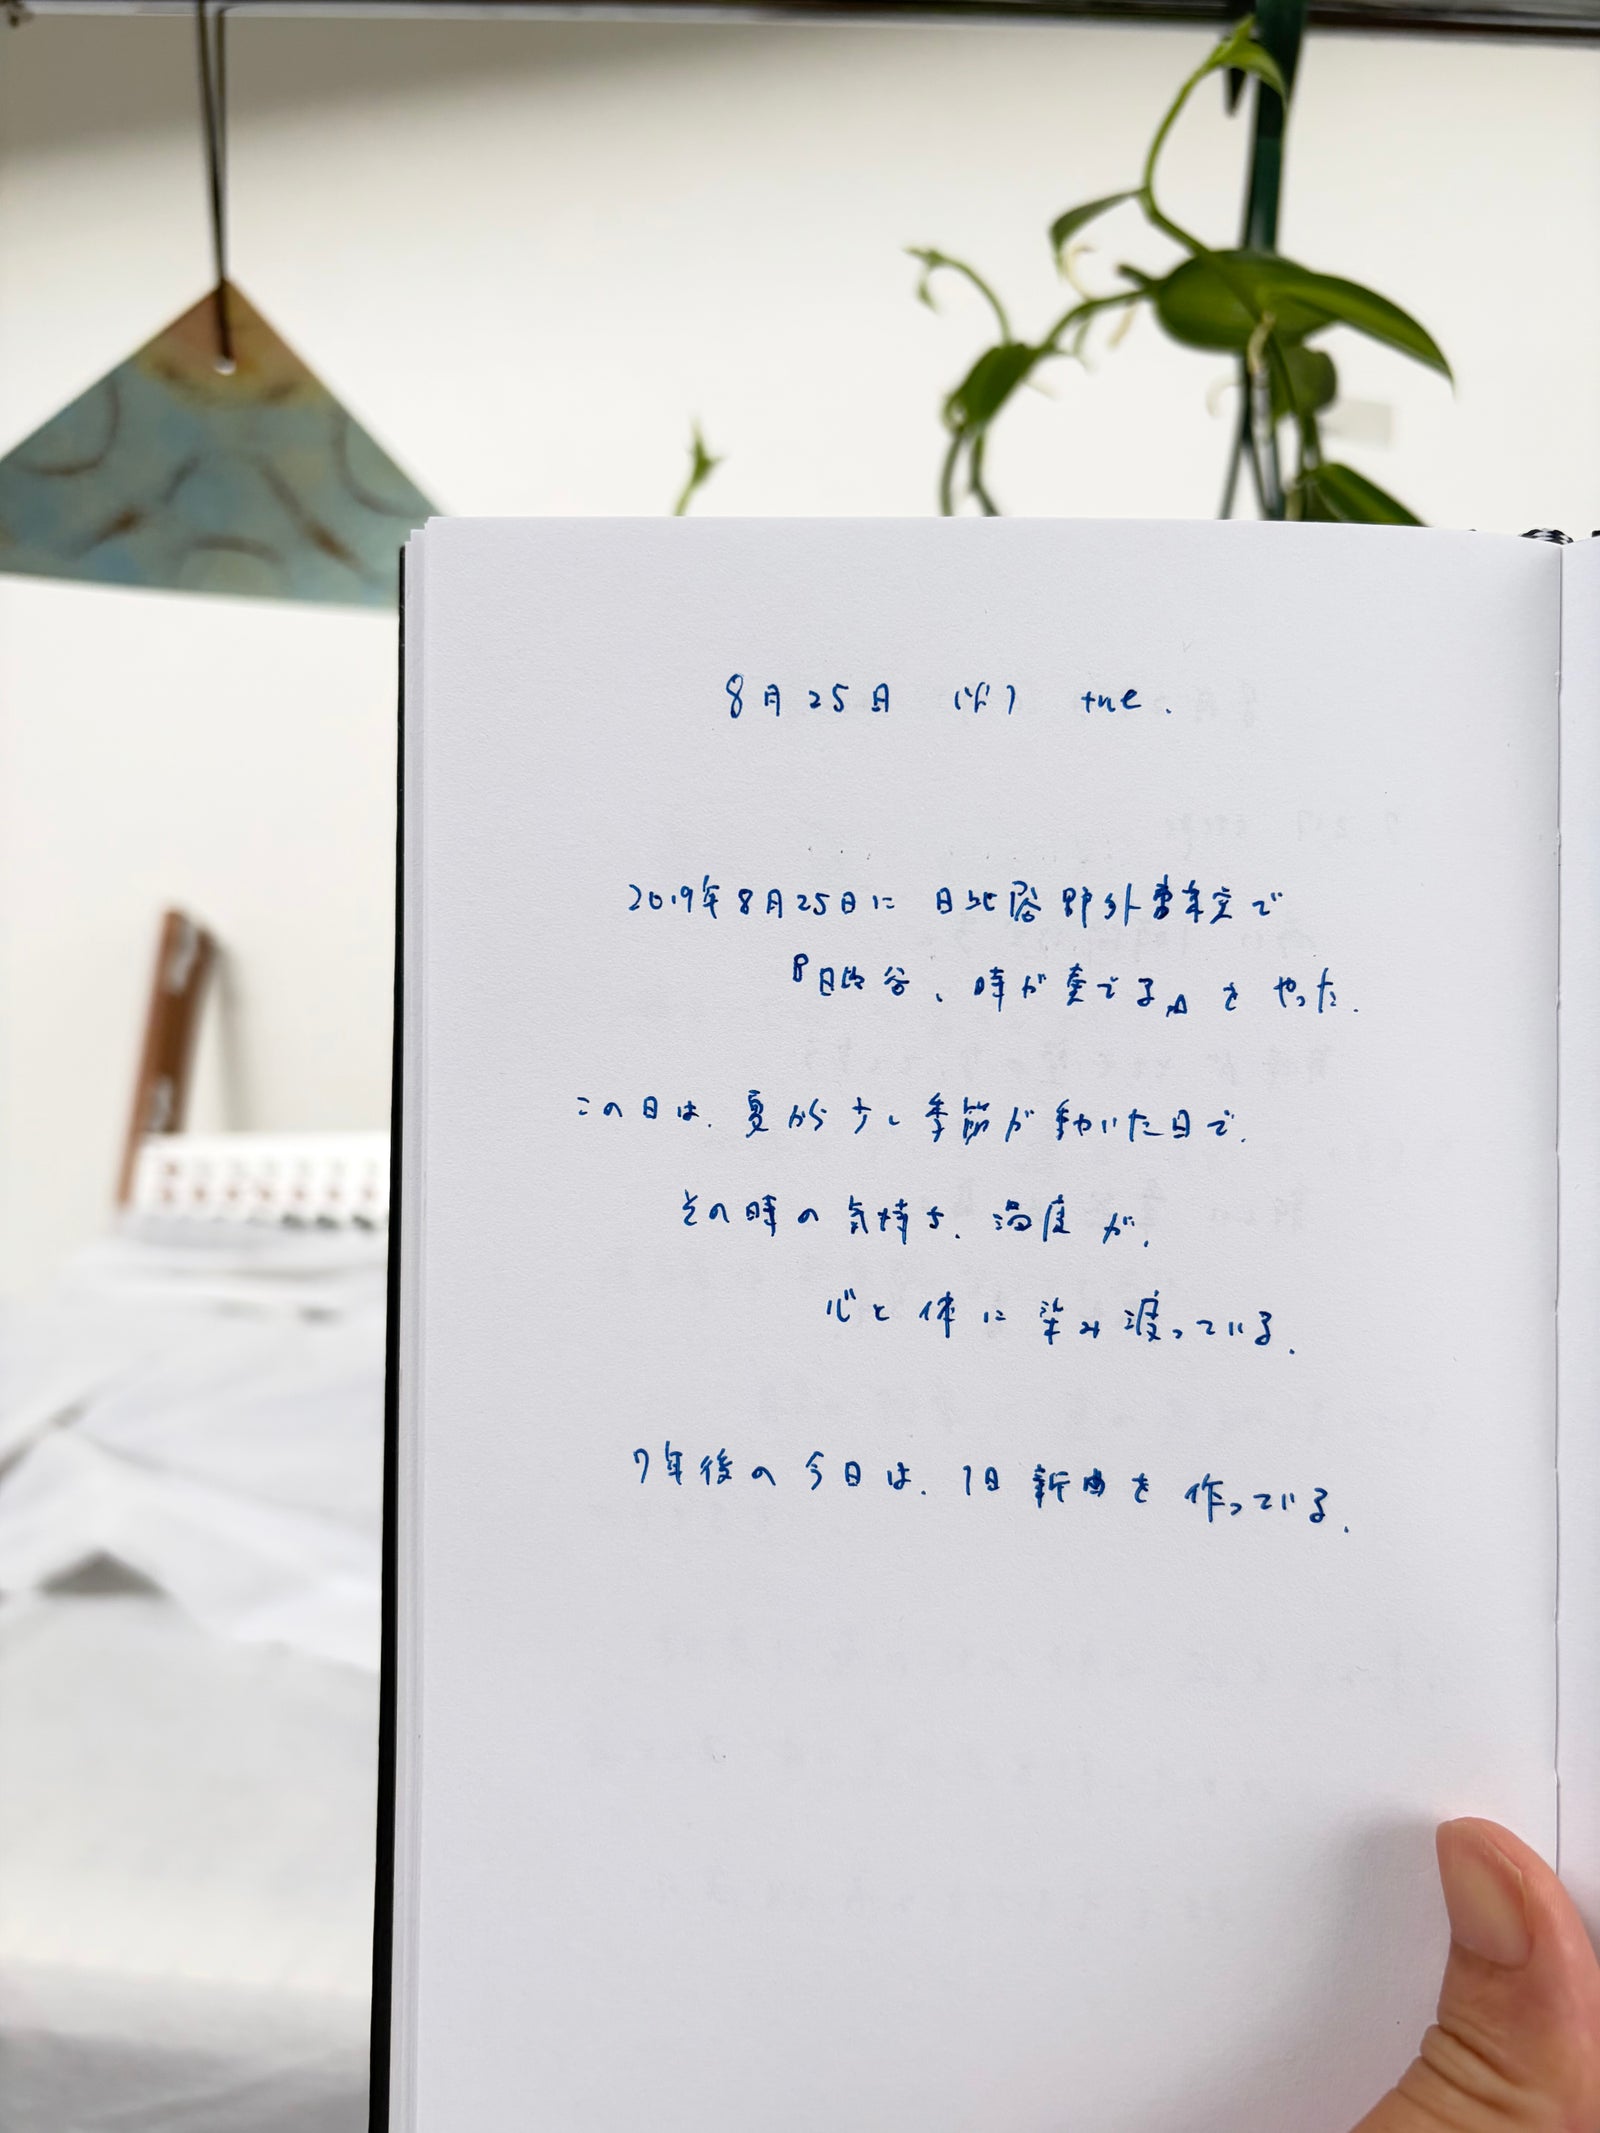 8月25日 (火) tue.
2019年8月25日に 日比谷野外音楽堂で
『日比谷、時が奏でる』を やった.
この日は、夏から少し季節が動いた日で、
その時の気持ち、温度が、
心と体に染み渡っている.
7年後の今日は、1日新曲を作っている.